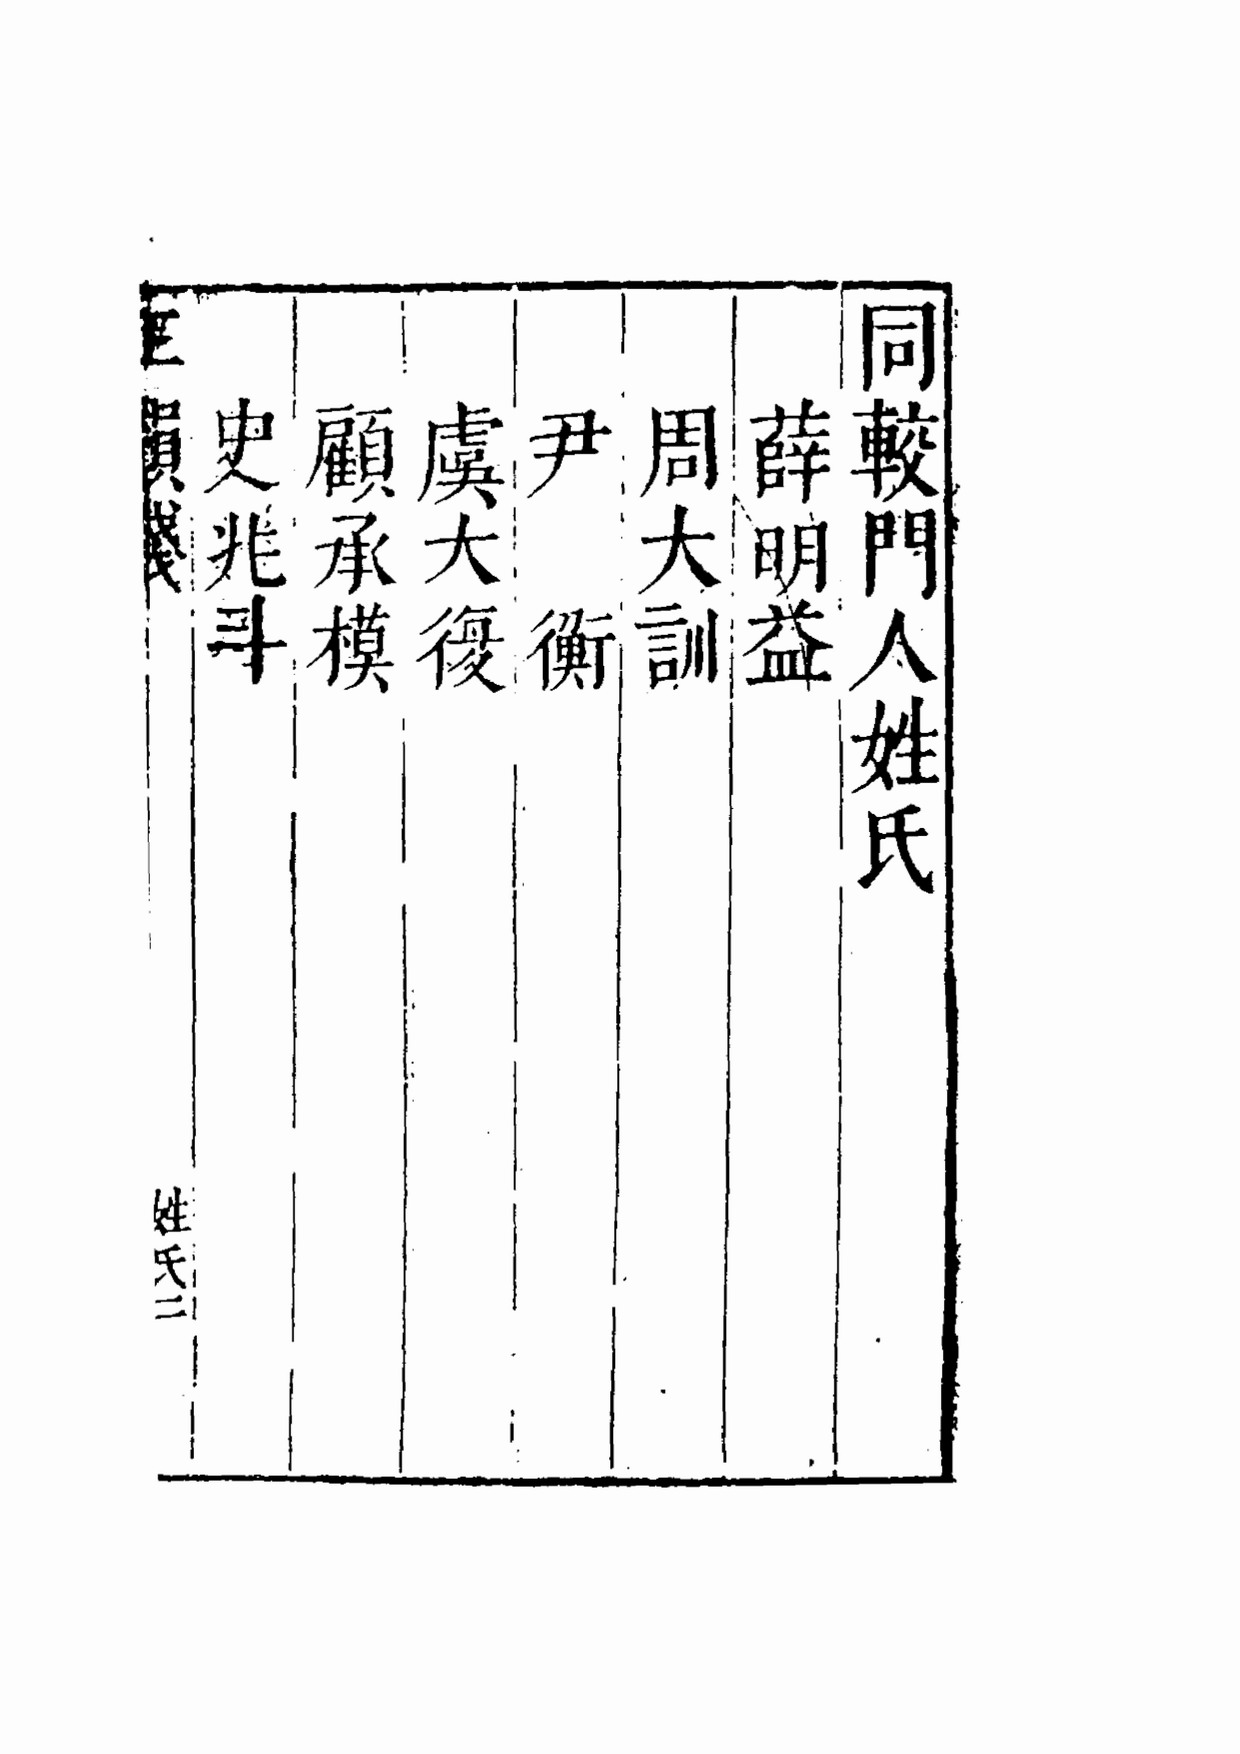 同較門人姓氏
薛明益
周大訓
尹　衡
虞大復
顧承模
史兆斗
姓氏二